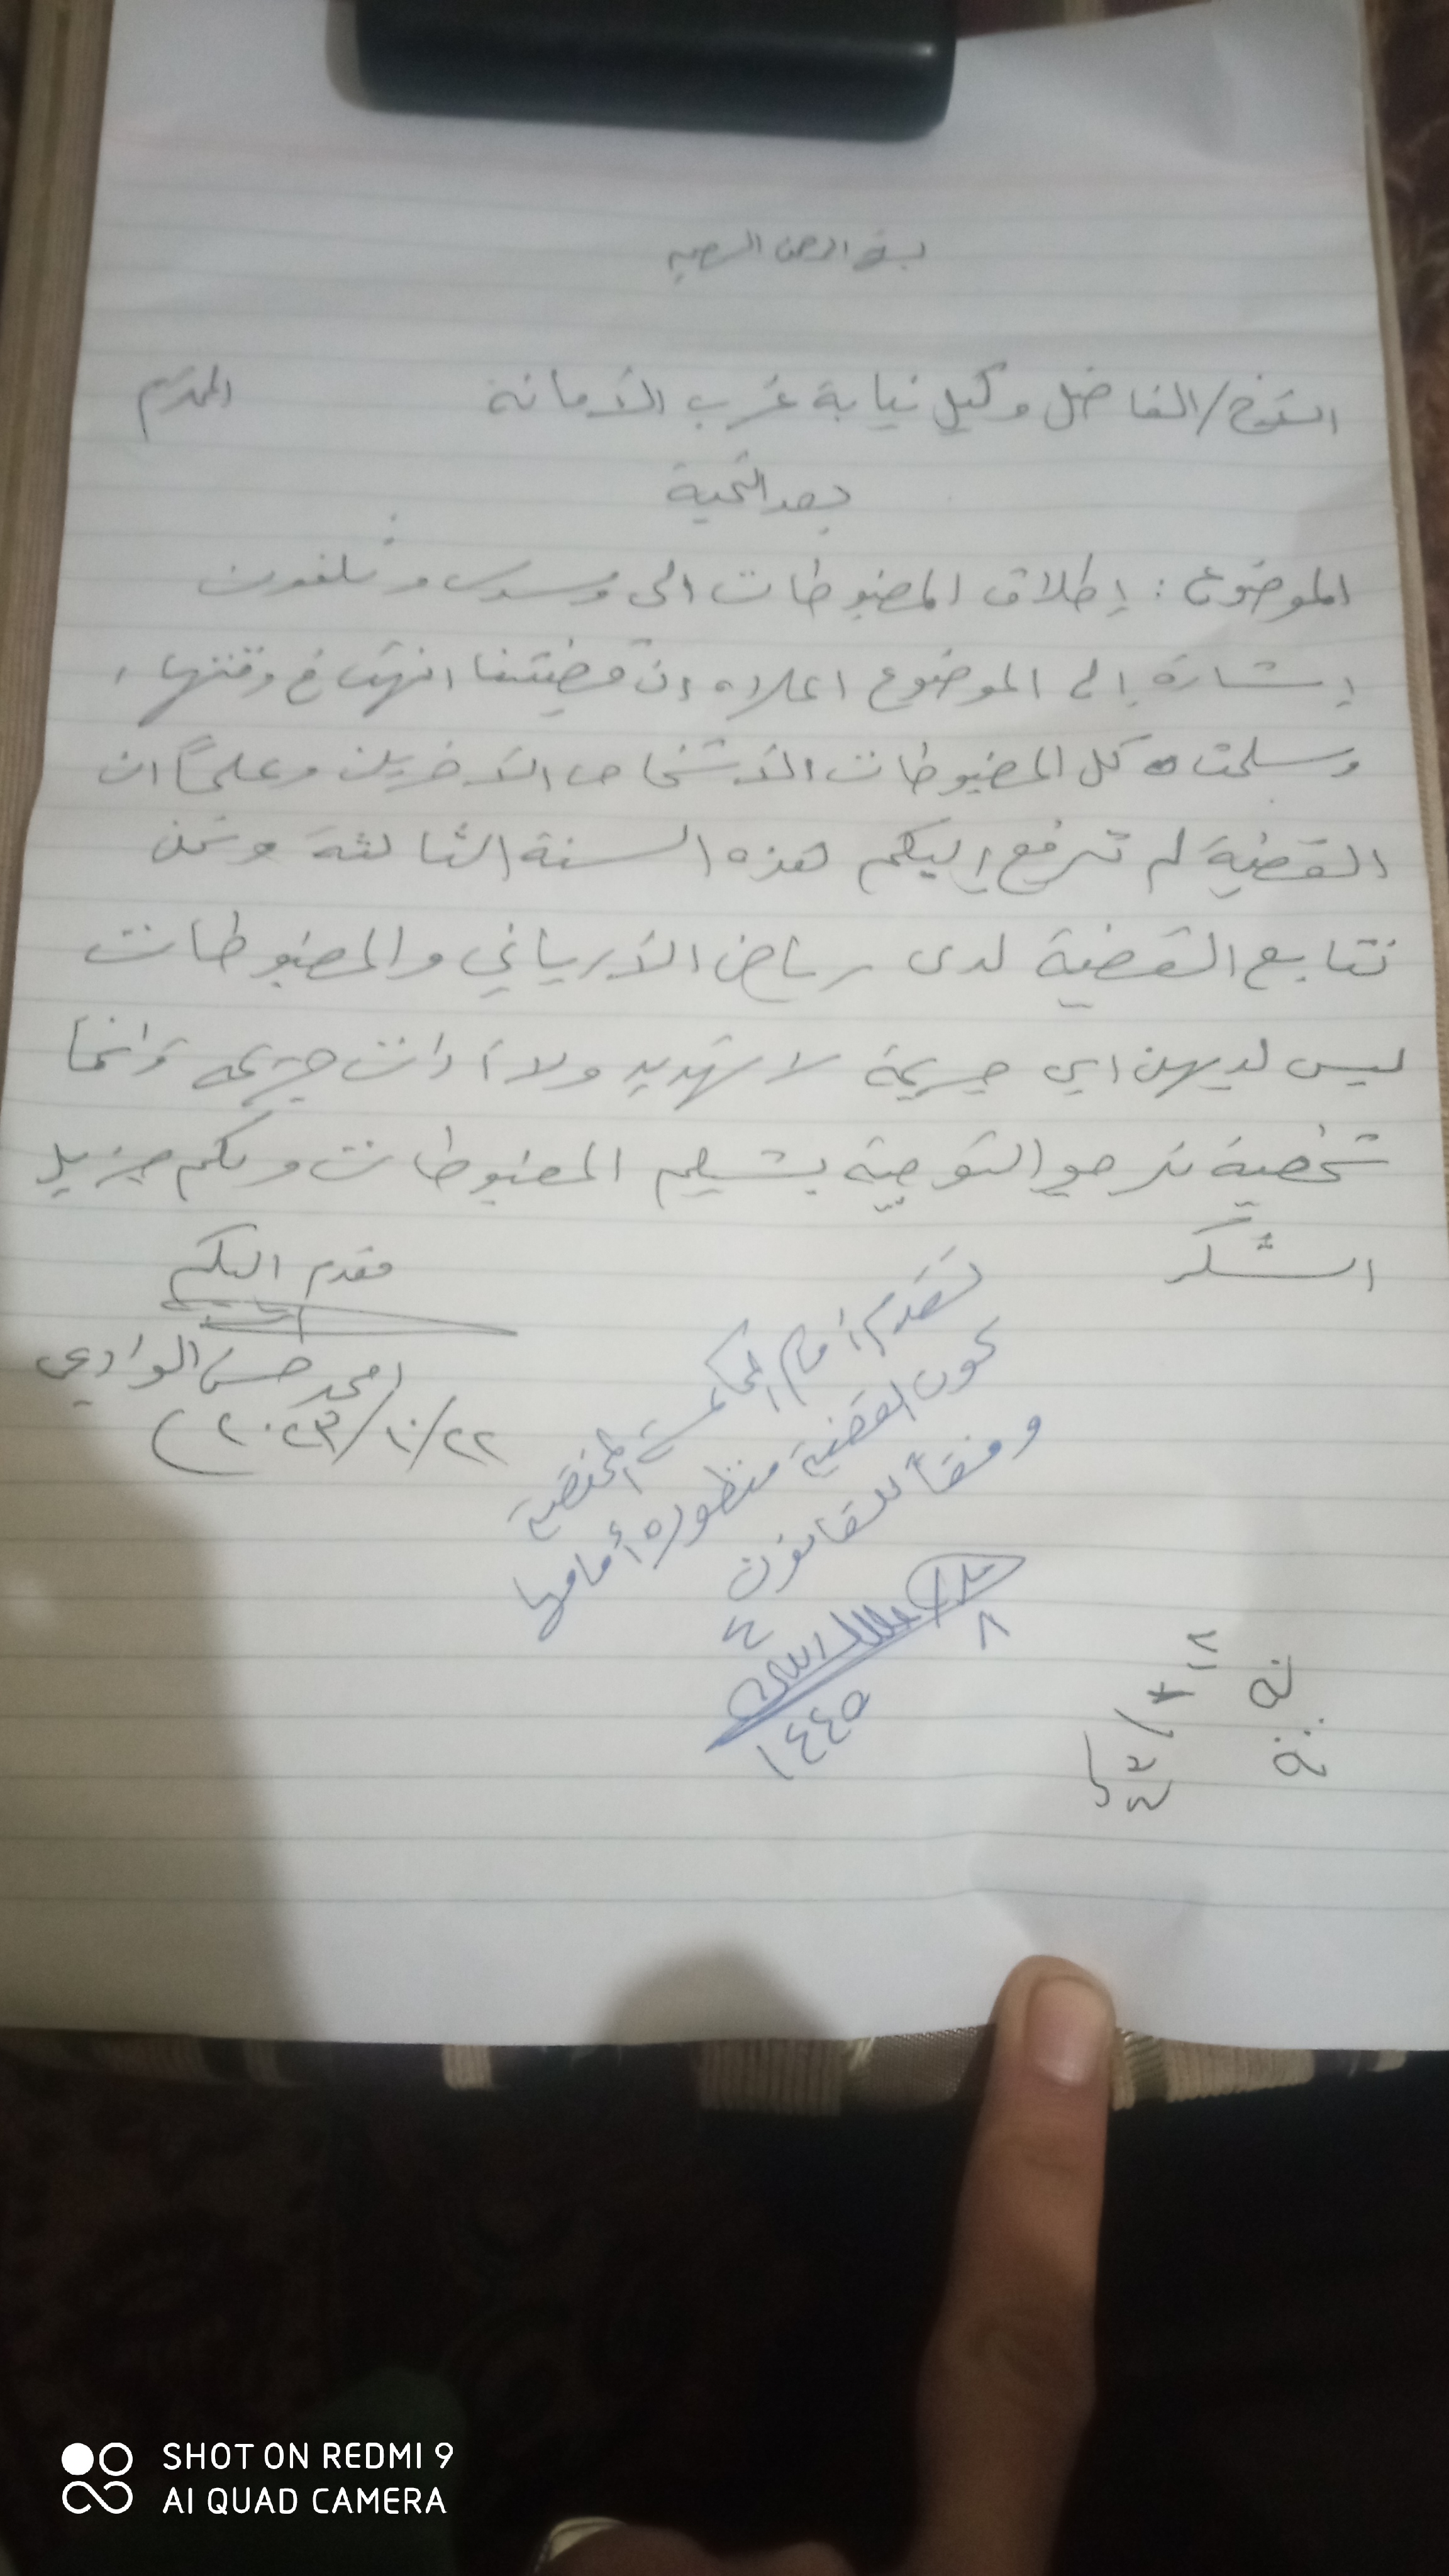 بسم الله الرحمن الرحيم
الشيخ/الفاضل وكيل نيابة غرب الأمانة المحترم
بعد التحية
الموضوع: إطلاق المضبوطات الى وتلفون
إشارة إلى الموضوع اعلاه ان قضيتنا انتهت في وقتها،
وسلمت كل المضبوطات الأشخاص الأخرين وعلماً ان
القضية لم ترفع إليكم لهذه السنة الثالثة ونحن
نتابع القضية لدى رياض الأرياني والمضبوطات
ليس لديهن اي جريمة لا تهديد ولا أدات جريمه وانما
شخصية نرجو التوصية بتسليم المضبوطات ولكم جزيل
الشكر
مقدم اليكم
امجد حسن الوادعي
٢٢/١٠/٢٠٢٣
تقدم أمام المحكمة المختصة
كون القضية منظوره أمامها
وفقاً للقانون
٨
٤
١٤٤٥
SHOT ON REDMI 9
AI QUAD CAMERA